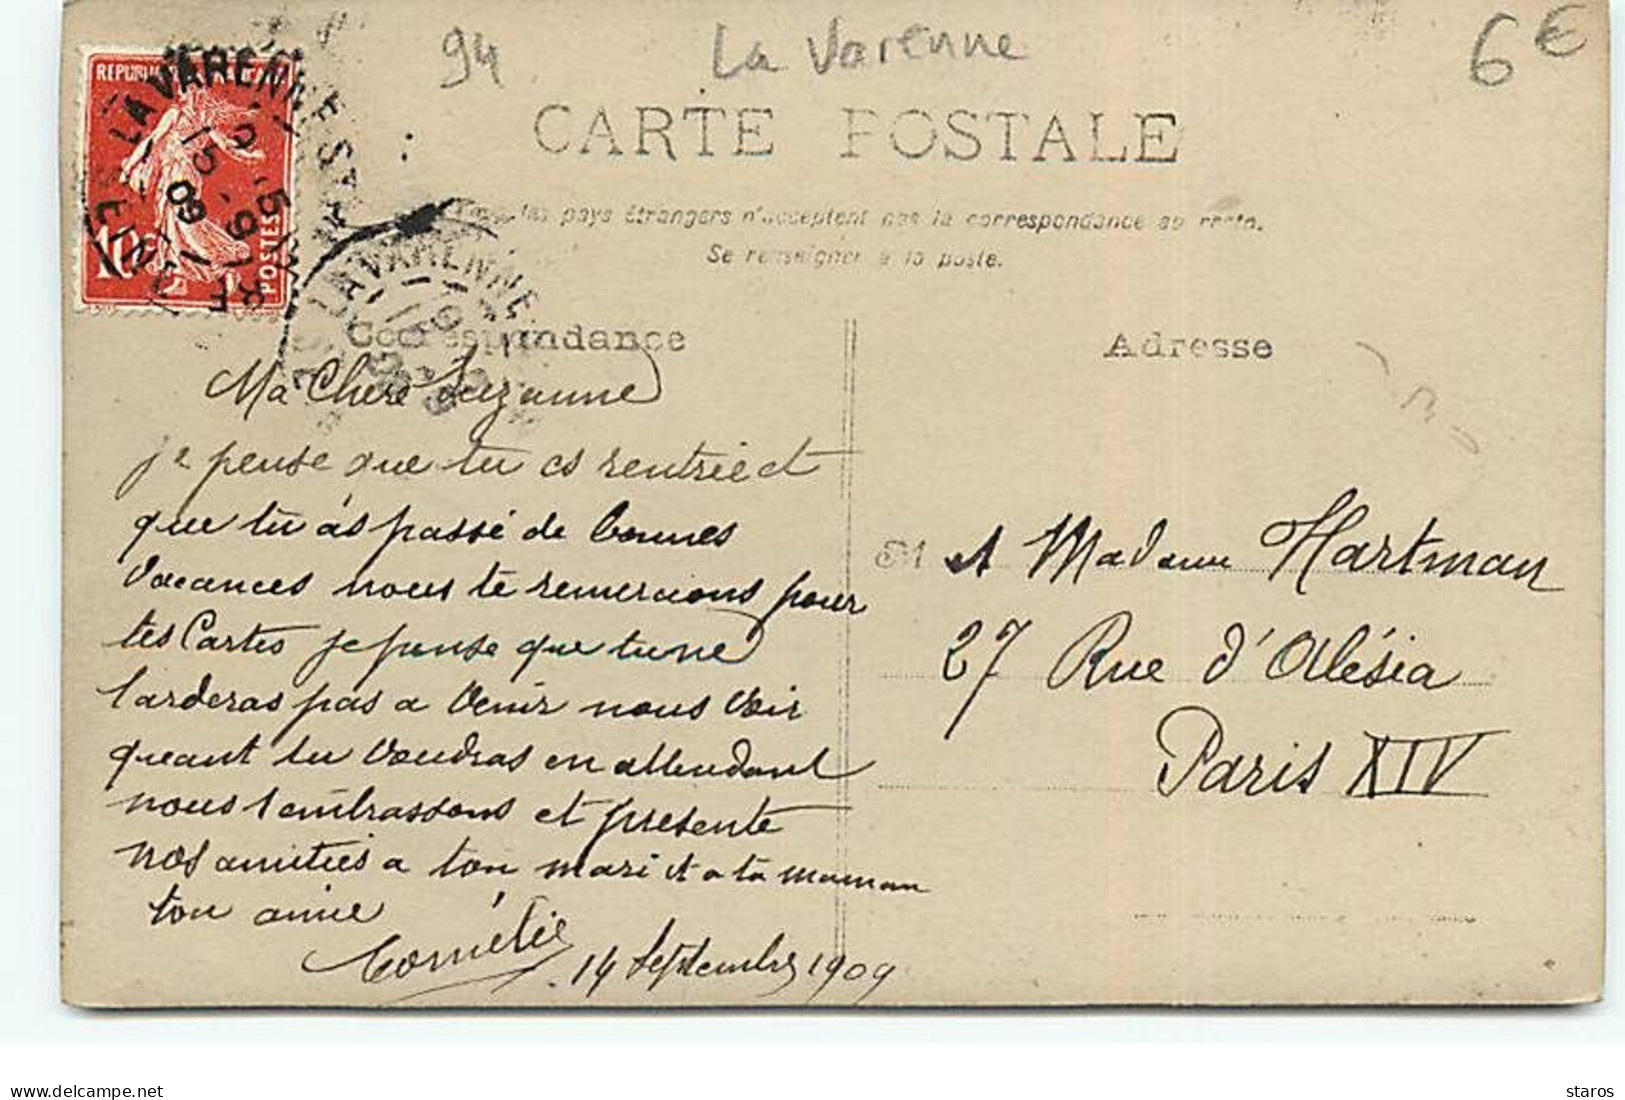 94 La Varenne 6€
REPUBLIQUE FRANCAISE
10c POSTES
LA VARENNE ST
SEINE
15 -9 09
CARTE POSTALE
les pays étrangers n'acceptent pas la correspondance au recto.
Se renseigner à la poste.
LA VARENNE
Correspondance
Adresse
Ma Chere Suzanne
je pense que tu es rentrée et
que tu ás passé de bonnes
vacances nous te remercions pour
tes Cartes je pense que tu ne
tarderas pas a venir nous voir
quant tu voudras en attendant
nous t embrassons et présente
nos amitiés a ton mari et a ta maman
ton amie
Cornélie
14 Septembre 1909
A Madame Hartman
27 Rue d'Alésia
Paris XIV
www.delcampe.net
staros